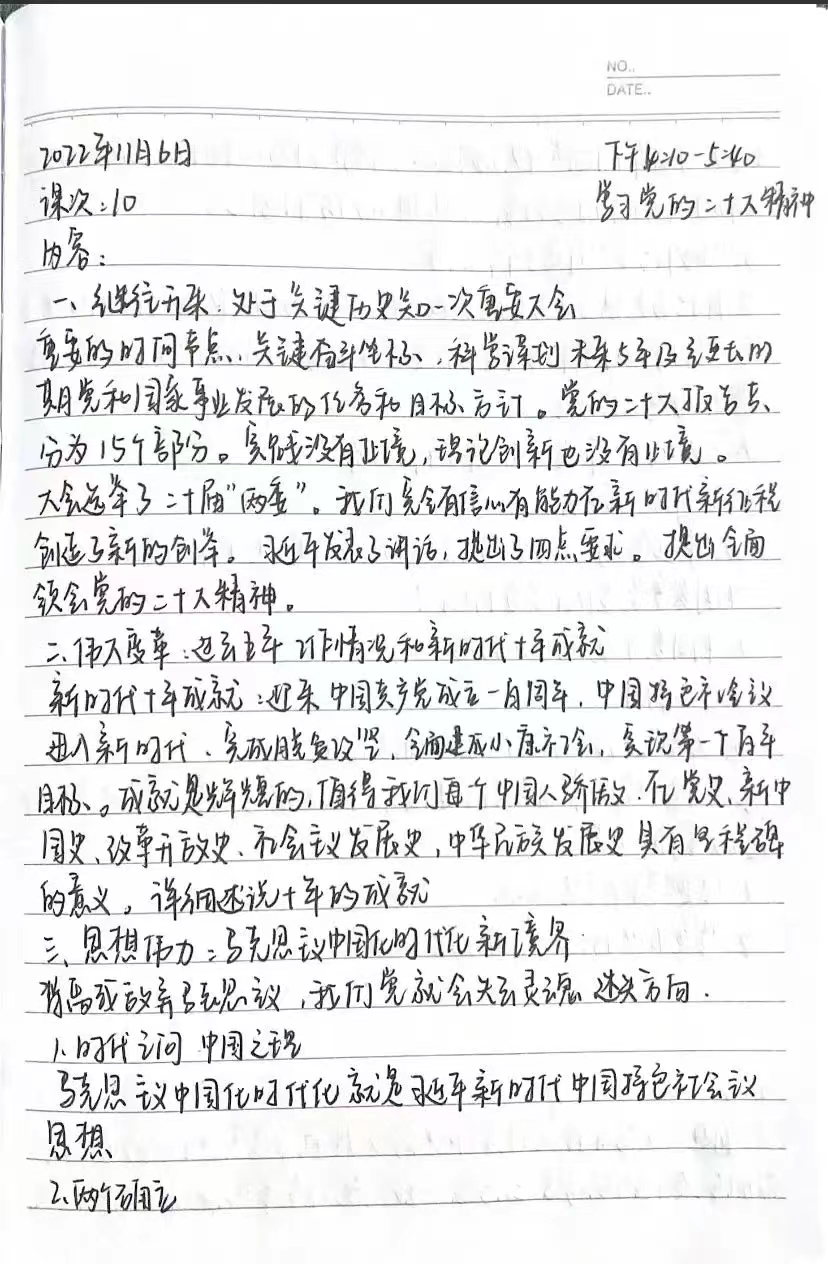 NO..
DATE..
2022年11月6日 下午4:10-5:40
课次:10 学习党的二十大精神
内容:
一、继往开来:处于关键历史 一次重要大会
重要的时间节点、关键奋斗坐标、科学谋划未来5年及至更长的
期党和国家事业发展的任务和目标方针。党的二十大报告共
分为15个部分。实践没有止境,理论创新也没有止境。
大会选举了二十届"两委"。我们完全有信心有能力在新时代新征程
创造了新的创举。习近平发表了讲话,提出了四点要求。提出全面
领会党的二十大精神。
二、伟大变革:过去五年工作情况和新时代十年成就
新时代十年成就:迎来中国共产党成立一百周年,中国特色社会议
进入新时代、完成脱贫攻坚,全面建成小康社会,实现第一个百年
目标。成就是辉煌的,值得我们每个中国人骄傲.在党史、新中
国史、改革开放史、社会议发展史,中华民族发展史具有里程碑
的意义。详细述说十年的成就
三、思想伟力:马克思议中国化时代化新境界
背离或放弃马克思议,我们党就会失去灵魂 迷失方向.
1.时代之问 中国之理
马克思议中国化时代化就是习近平新时代中国特色社会议
思想
2.两个确立